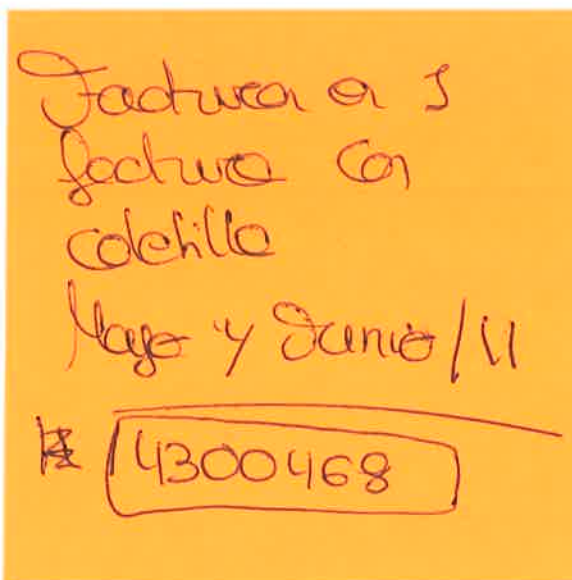 Factura a 1
factura con
colchilla
Mayo y Junio/11
4300468